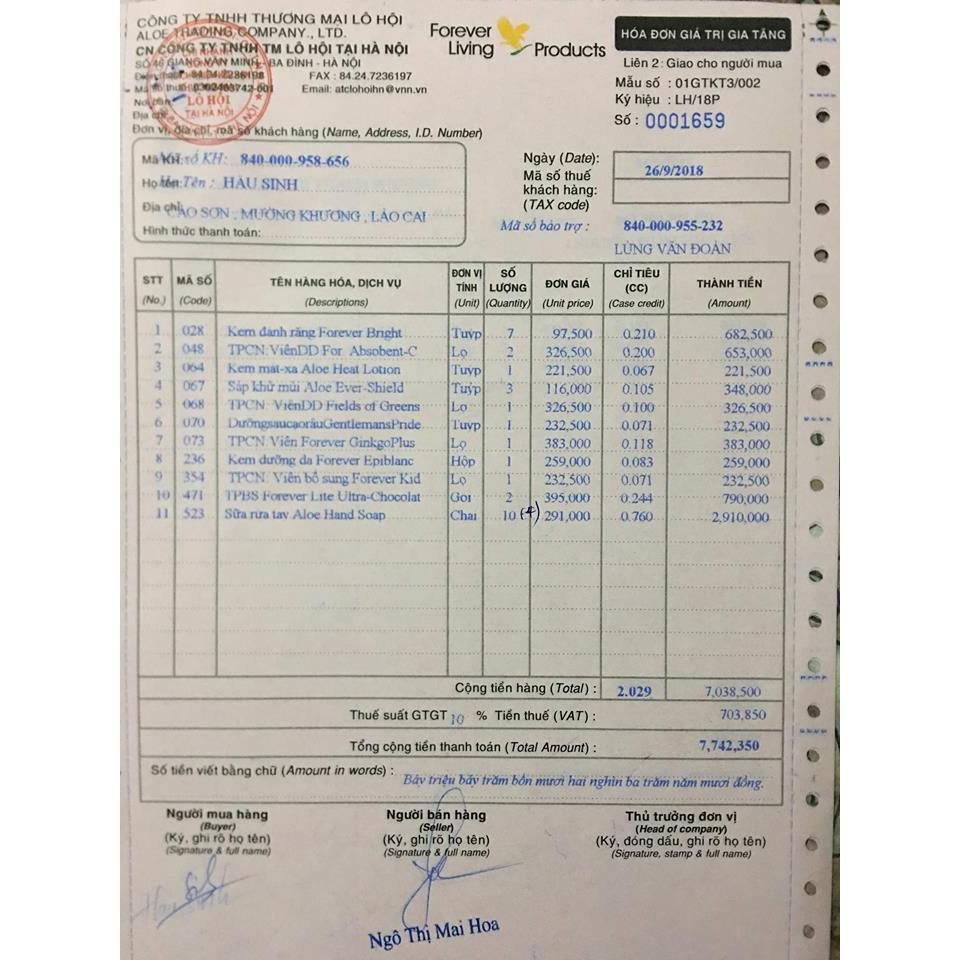 CÔNG TY TNHH THƯƠNG MẠI LÔ HỘI
ALOE TRADING COMPANY., LTD.
CN CÔNG TY TNHH TM LÔ HỘI TẠI HÀ NỘI
SỐ 46 GIANG VĂN MINH - BA ĐÌNH - HÀ NỘI
84.24.7236198 FAX : 84.24.7236197
Mã số thuế 0302403742-001 Email: atclohoihn@vnn.vn
LÔ HỘI
TẠI HÀ NỘI
Địa chỉ
Đơn vị, địa chỉ, mã số khách hàng (Name, Address, I.D. Number)
Forever Living Products
HÓA ĐƠN GIÁ TRỊ GIA TĂNG
Liên 2: Giao cho người mua
Mẫu số : 01GTKT3/002
Ký hiệu : LH/18P
Số : 0001659
Mã KH: Mã số KH: 840-000-958-656
Họ tên: Họ Tên : HẦU SINH
Địa chỉ: CAO SƠN , MƯỜNG KHƯƠNG , LÀO CAI
Hình thức thanh toán:
Ngày (Date): 26/9/2018
Mã số thuế
khách hàng:
(TAX code)
Mã số bảo trợ : 840-000-955-232
LÙNG VĂN ĐOÀN
STT (No.) MÃ SỐ (Code) TÊN HÀNG HÓA, DỊCH VỤ (Descriptions) ĐƠN VỊ TÍNH (Unit) SỐ LƯỢNG (Quantity) ĐƠN GIÁ (Unit price) CHỈ TIÊU (CC) (Case credit) THÀNH TIỀN (Amount)
1 028 Kem đánh răng Forever Bright Tuýp 7 97,500 0.210 682,500
2 048 TPCN: ViênDD For. Absobent-C Lọ 2 326,500 0.200 653,000
3 064 Kem mát-xa Aloe Heat Lotion Tuýp 1 221,500 0.067 221,500
4 067 Sáp khử mùi Aloe Ever-Shield Tuýp 3 116,000 0.105 348,000
5 068 TPCN: ViênDD Fields of Greens Lọ 1 326,500 0.100 326,500
6 070 DưỡngsaucạorâuGentlemansPride Tuýp 1 232,500 0.071 232,500
7 073 TPCN: Viên Forever GinkgoPlus Lọ 1 383,000 0.118 383,000
8 236 Kem dưỡng da Forever Epiblanc Hộp 1 259,000 0.083 259,000
9 354 TPCN: Viên bổ sung Forever Kid Lọ 1 232,500 0.071 232,500
10 471 TPBS Forever Lite Ultra-Chocolat Gói 2 395,000 0.244 790,000
11 523 Sữa rửa tay Aloe Hand Soap Chai 10 291,000 0.760 2,910,000
Cộng tiền hàng (Total) : 2.029 7,038,500
Thuế suất GTGT 10 % Tiền thuế (VAT) : 703,850
Tổng cộng tiền thanh toán (Total Amount) : 7,742,350
Số tiền viết bằng chữ (Amount in words) : Bảy triệu bảy trăm bốn mươi hai nghìn ba trăm năm mươi đồng.
Người mua hàng Người bán hàng Thủ trưởng đơn vị
(Buyer) (Seller) (Head of company)
(Ký, ghi rõ họ tên) (Ký, ghi rõ họ tên) (Ký, đóng dấu, ghi rõ họ tên)
(Signature & full name) (Signature & full name) (Signature, stamp & full name)
Ngô Thị Mai Hoa